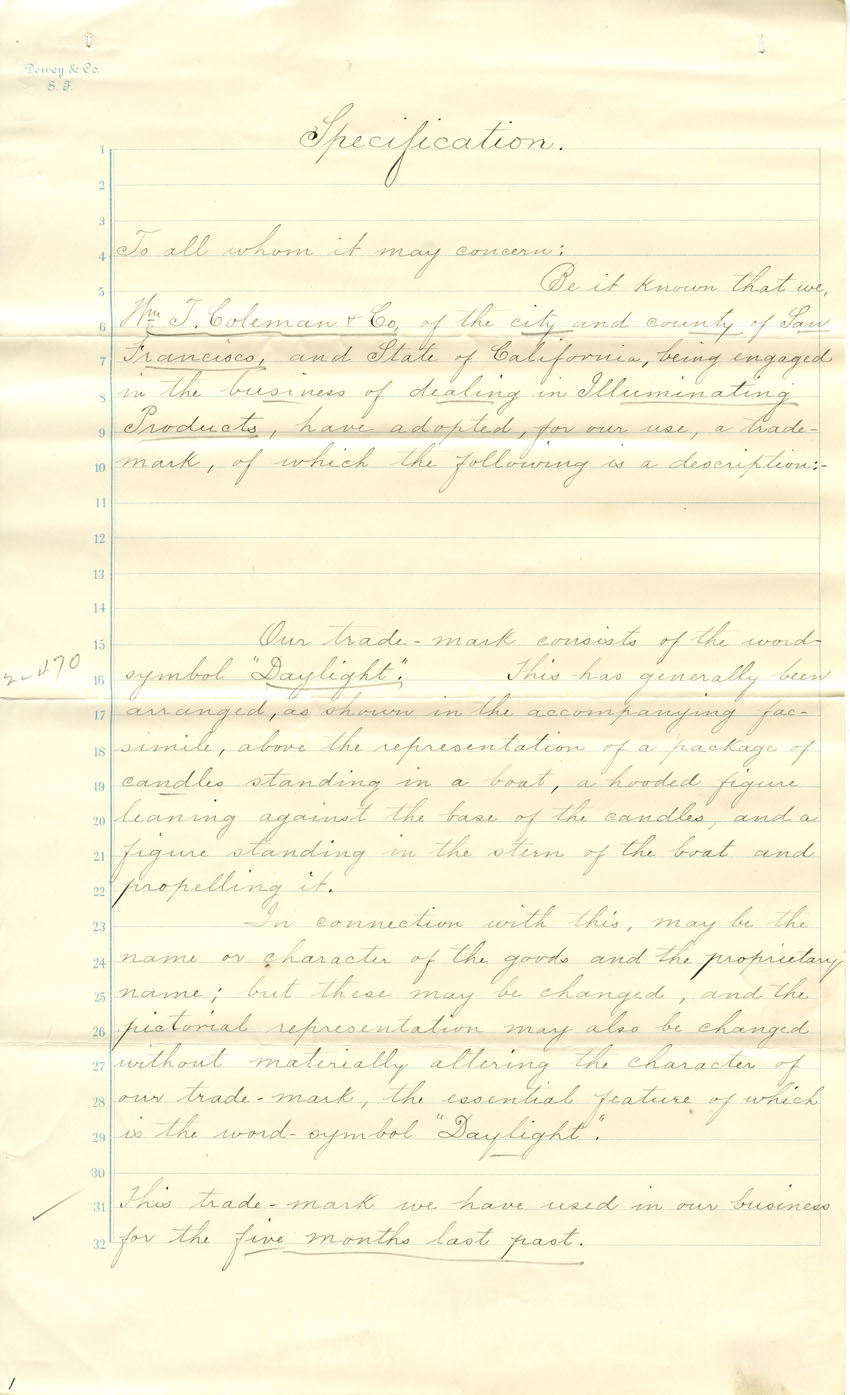 Dewey & Co.
S. F.
Specification.
1
2
3
4 To all whom it may concern:
5 Be it known that we,
6 Wm T. Coleman & Co, of the city and county of San
7 Francisco, and State of California, being engaged
8 in the business of dealing in Illuminating
9 Products, have adopted, for our use, a trade-
10 mark, of which the following is a description:-
11
12
13
14
15 Our trade-mark consists of the word-
16 symbol "Daylight". This has generally been
17 arranged, as shown in the accompanying fac-
18 simile, above the representation of a package of
19 candles standing in a boat, a hooded figure
20 leaning against the base of the candles, and a
21 figure standing in the stern of the boat and
22 propelling it.
23 In connection with this, may be the
24 name or character of the goods and the proprietary
25 name; but these may be changed, and the
26 pictorial representation may also be changed
27 without materially altering the character of
28 our trade-mark, the essential feature of which
29 is the word-symbol "Daylight".
30
31 This trade-mark we have used in our business
32 for the five months last past.
1